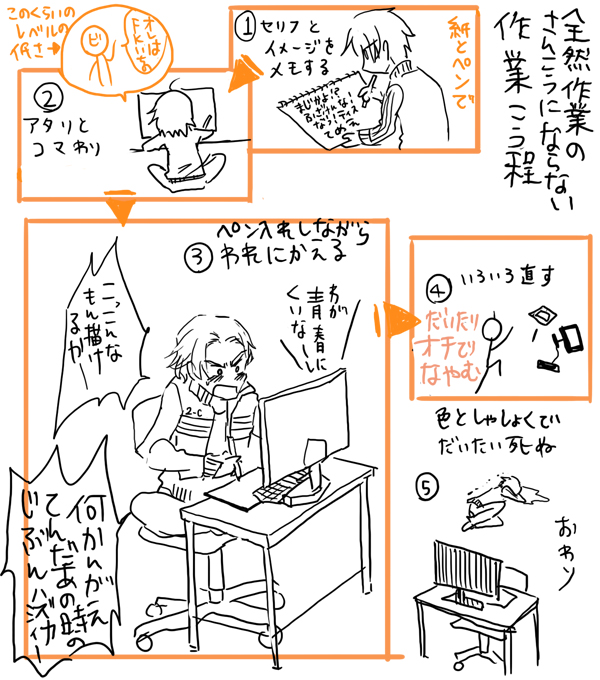 全然作業の
さんこうにならない
作業こう程
①セリフと
イメージを
メモする
紙とペンで
このくらいの
レベルの
低さ→
②
アタリと
コマわり
③
ペン入れしながら
われにかえる
わが
青春に
くいなーし
こっこんな
もん描け
るかー
2-C
何かんがえ
てんだあの時の
じぶんハズイカー
④
いろいろ直す
だいたり
オチでり
なやむ
色としゃしょくで
だいたい死ぬ
⑤
おわり